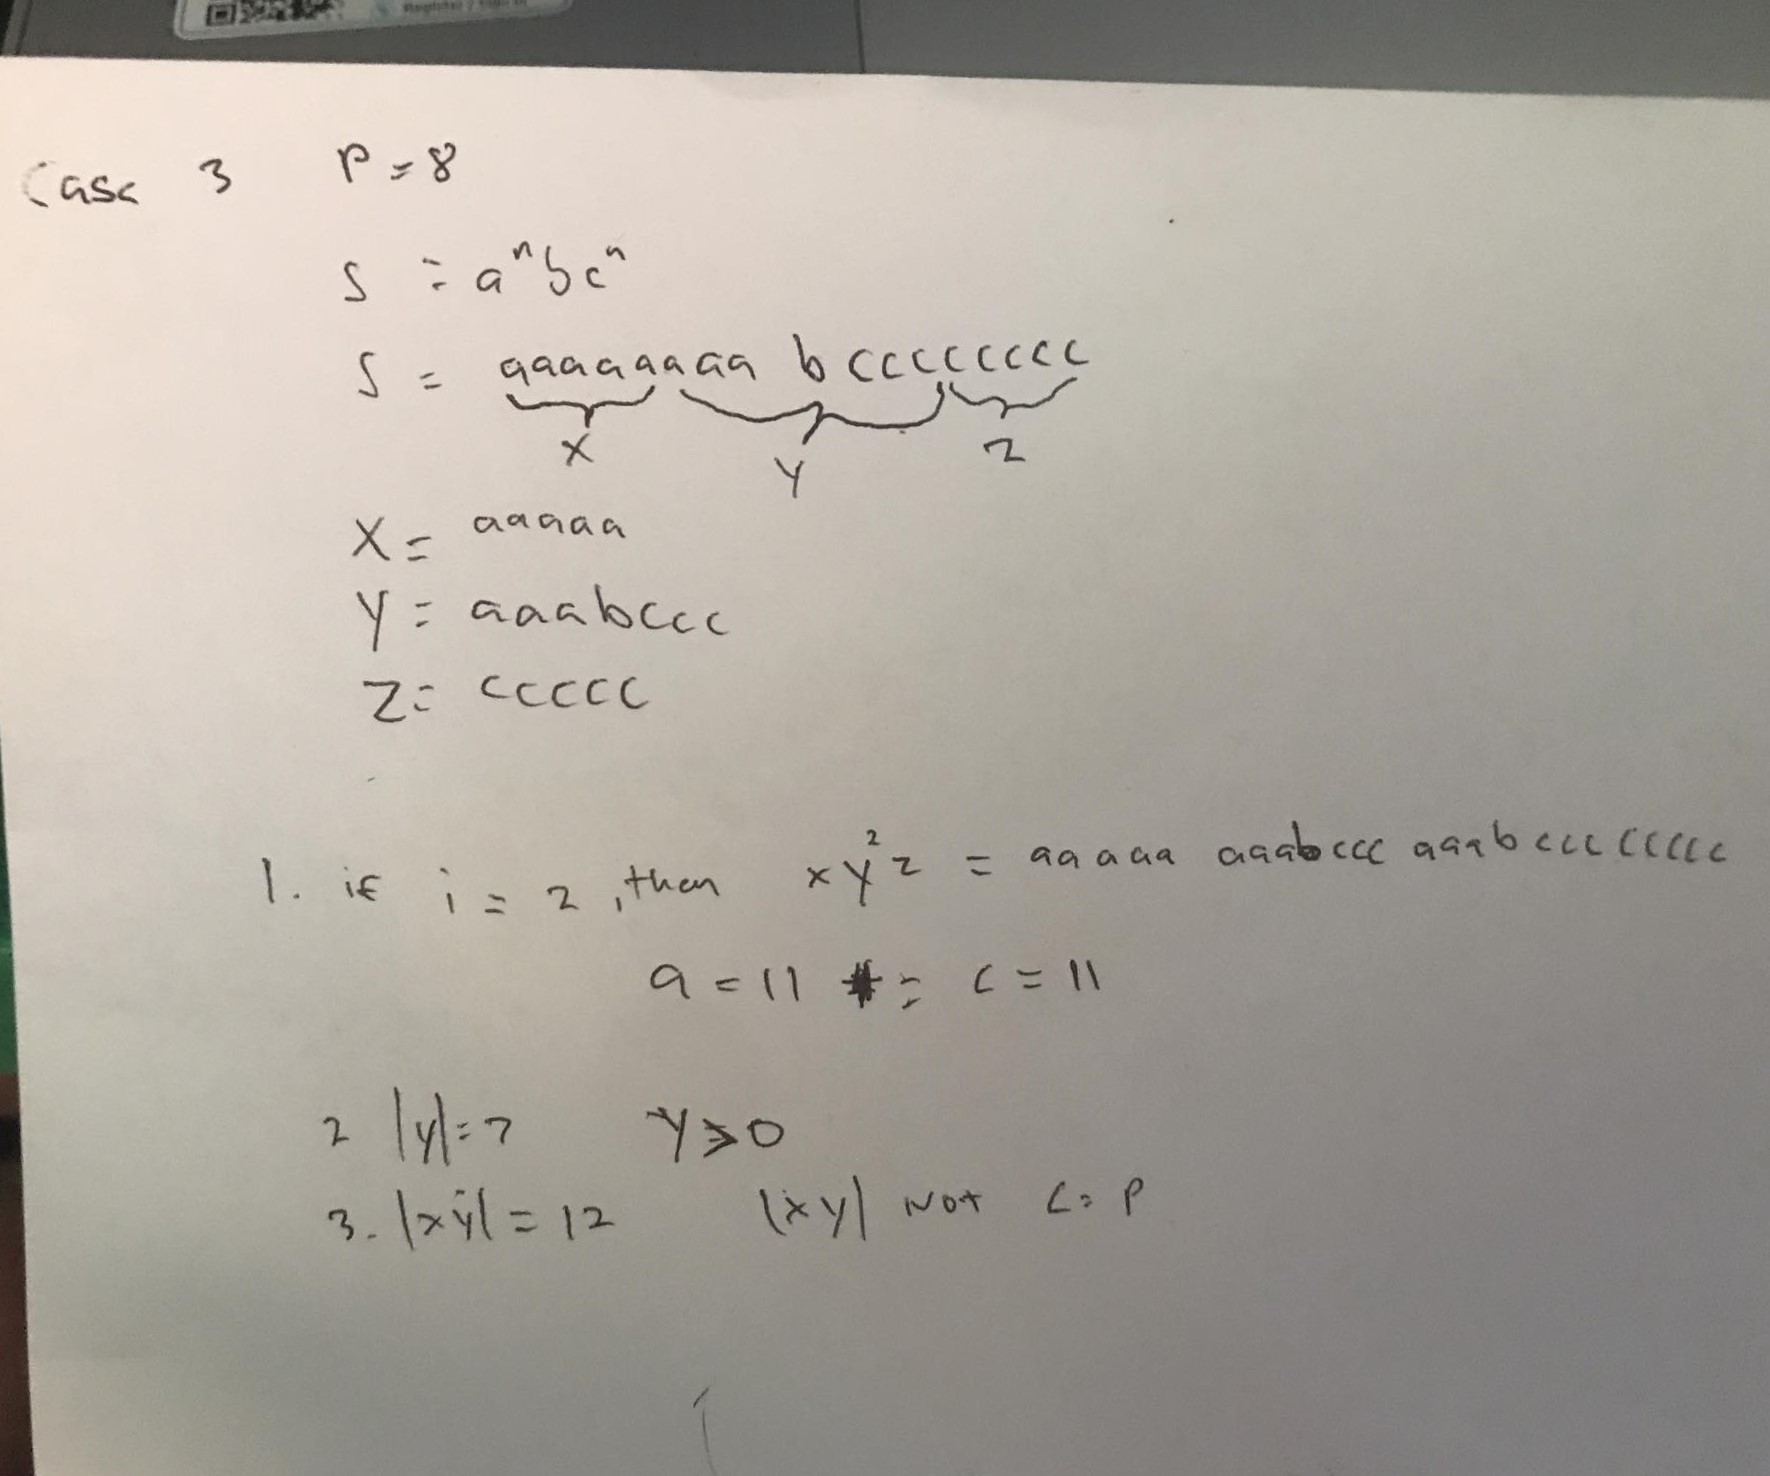 Register / Sign in
Case 3 P = 8
S = aⁿbcⁿ
S = aaaaaaaa b cccccccc
X Y Z
X = aaaaa
Y = aaabccc
Z = ccccc
1. if i = 2, then xy²z = aaaaa aaabccc aaabccc ccccc
a = 11 = c = 11
2 |y| = 7 Y > 0
3. |xy| = 12 |xy| Not <= P